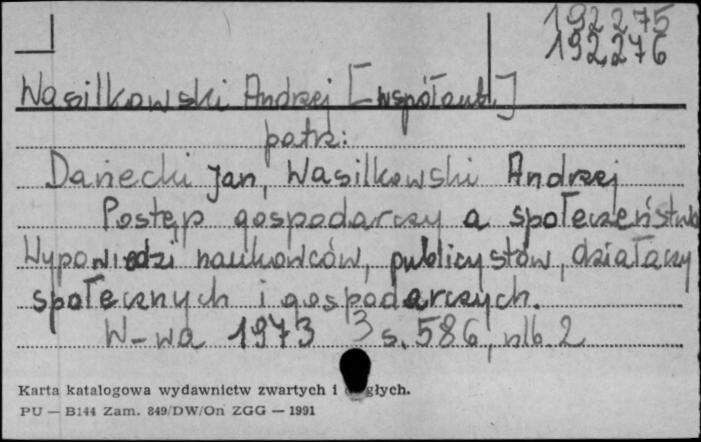 192275
192276
Wasilkowski Andrzej [współaut.]
patrz:
Danecki Jan, Wasilkowski Andrzej
Postęp gospodarczy a społeczeństwo
Wypowiedzi naukowców, publicystów, działaczy
społecznych i gospodarczych.
W-wa 1973 s. 586, nlb. 2
Karta katalogowa wydawnictw zwartych i głych.
PU — B144 Zam. 849/DW/On ZGG — 1991